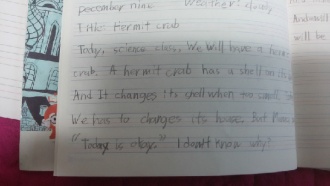 December nine Weather: cloudy
Title: Hermit crab
Today, science class, We will have a
crab. A hermit crab has a shell on its
And it changes its shell when too small,
We has to changes its house. But
"Today is okay." I don't know why?
And
will be